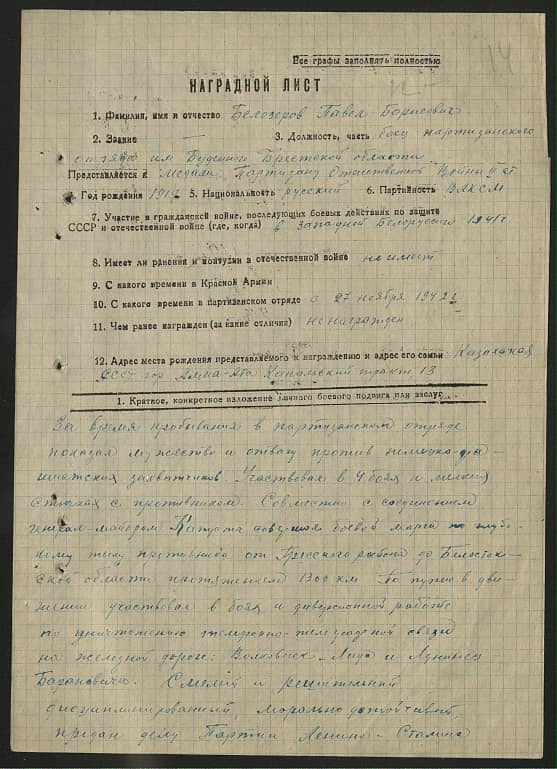 Все графы заполнять полностью
НАГРАДНОЙ ЛИСТ
1. Фамилия, имя и отчество Белозеров Павел Борисович
2. Звание — 3. Должность, часть боец партизанского
отряда им Буденного Брестской области
Представляется к Медали „Партизану Отечественной Войны II ст
4. Год рождения 1919 5. Национальность русский 6. Партийность ВЛКСМ
7. Участие в гражданской войне, последующих боевых действиях по защите
СССР и отечественной войне (где, когда) в Западной Белоруссии 1941г
8. Имеет ли ранения и контузии в отечественной войне не имеет
9. С какого времени в Красной Армии
10. С какого времени в партизанском отряде с 27 ноября 1942г
11. Чем ранее награжден (за какие отличия) не награжден
12. Адрес места рождения представляемого к награждению и адрес его семьи Казахская
ССР гор Алма-Ата тракт 13
1. Краткое, конкретное изложение личного боевого подвига или заслуг
За время пребывания в партизанском отряде
показал мужество и отвагу против немецко-фа-
шистских захватчиков. Участвовал в 4 боях и мелких
стычках с противником. Совместно с соединением
генерал-майором Капуста совершил боевой марш по глубо-
кому тылу противника от района до Белосток-
ской области протяжением 1300 км По пути в дви-
жении участвовал в боях и диверсионной работе
по уничтожению телефонно-телеграфной связи
на железной дороге: Волковыск – Лида и Лунинец
Барановичи. Смелый и решительный
дисциплинированный, морально устойчивый,
предан делу Партии Ленина – Сталина